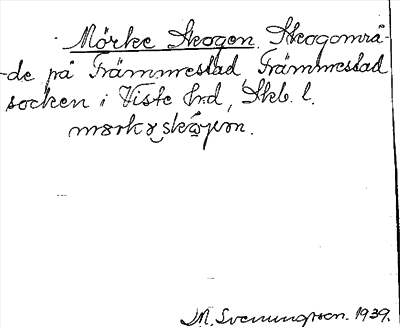 Mörke Skogen. Skogområ-
de på Främmestad, Främmestad
socken i Viste hrd, Skb. l.
M. Svenungsson. 1939.